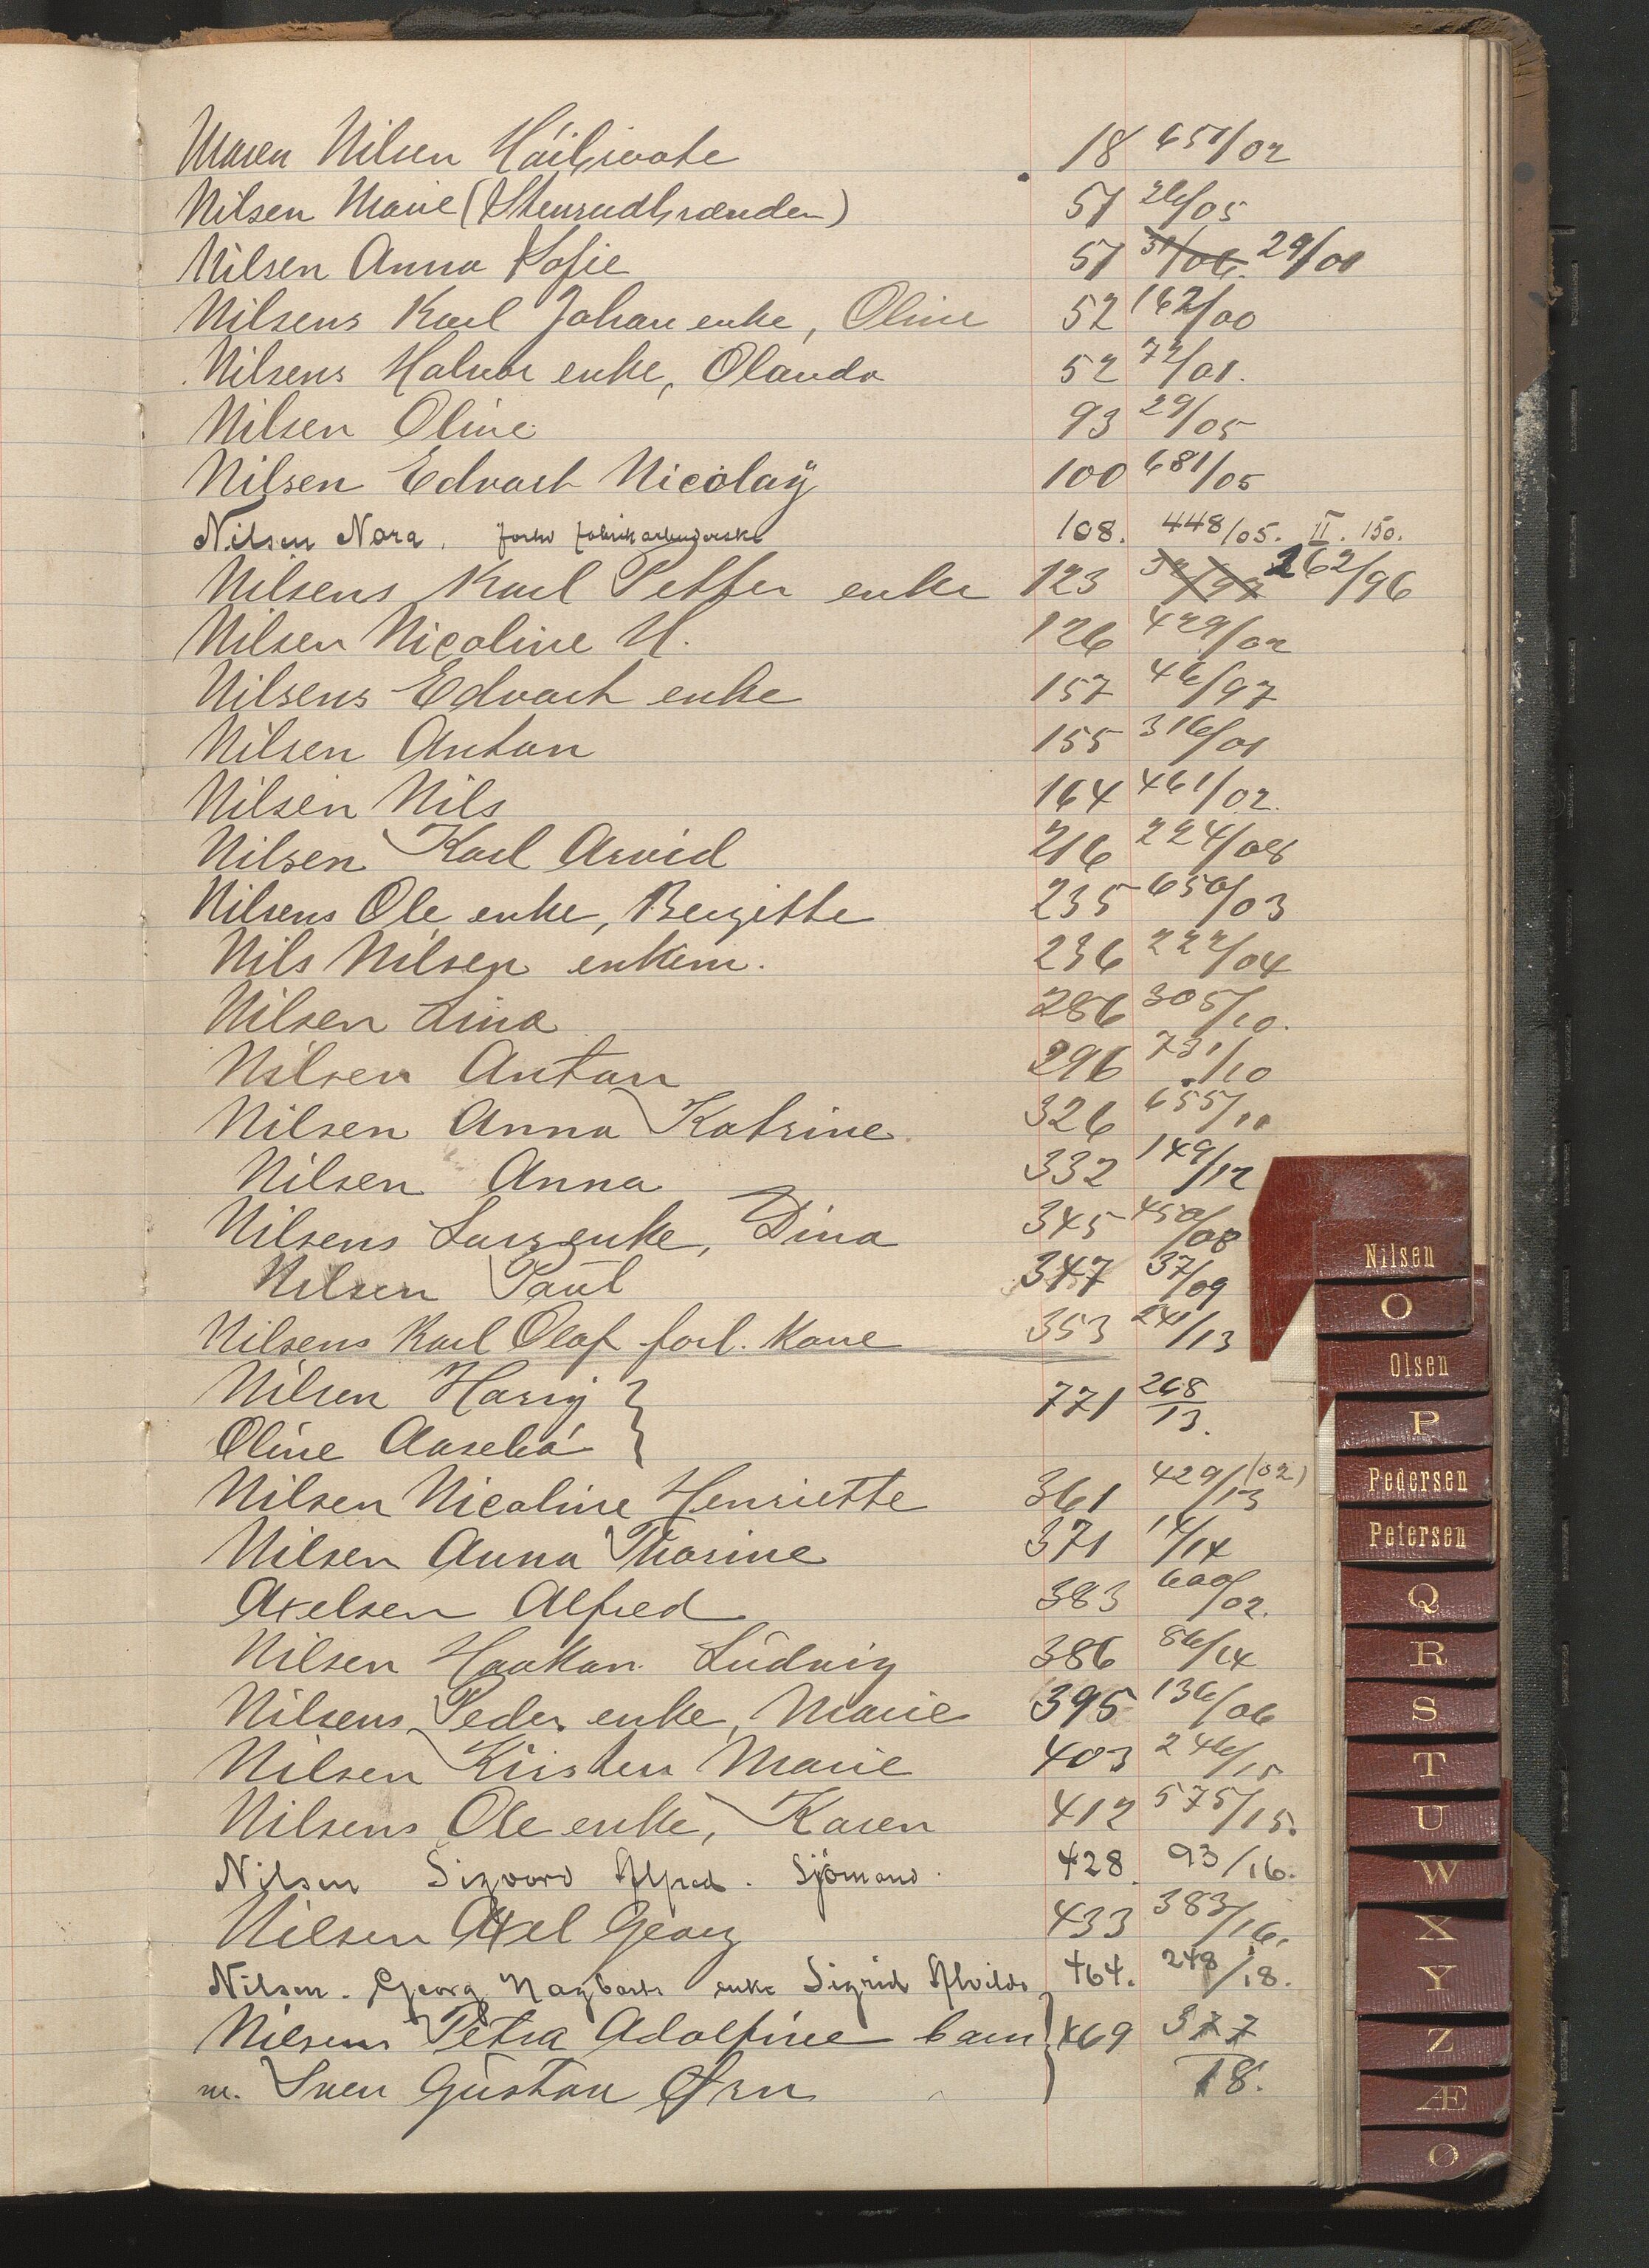 Maren Nilsen 18 651/02
Nilsen Marie (Stensrudbraenden) 51 26/05
Nilsen Anna Sofie 51 31/06. 29/01
Nilsens Karl Johan enke, Oline 52 162/00
Nilsens Halvor enke, Olanda 52 72/01.
Nilsen Oline 93 29/05
Nilsen Edvart Nicolaÿ 100 681/05
Nilsen Nora. fabrikarbeiderske 108. 448/05. II. 150.
Nilsens Karl Petter enke 123 262/96
Nilsen Nicoline H. 126 429/02
Nilsens Edvart enke 157 46/97
Nilsen Anton 155 316/01
Nilsen Nils 164 461/02.
Nilsen Karl Arvid 216 224/08
Nilsens Ole enke, Bergitte 235 650/03
Nils Nilsen enkem. 236 222/04
Nilsen Lina 286 305/10.
Nilsen Anton 296 731/10
Nilsen Anna Katrine 326 655/11
Nilsen Anna 332 149/12
Nilsens Lars enke, Dina 345 450/08
Nilsen Paul 347 37/09
Nilsens Karl Olaf forl. Kone 353 241/13
Nilsen Harry } 771 268/13.
Oline Aaselia }
Nilsen Nicoline Henriette 361 429/13 (02)
Nilsen Anna Thorine 371 14/14
Axelsen Alfred 383 600/02.
Nilsen Haakon Ludvig 386 86/14
Nilsens Peder enke, Marie 395 136/06
Nilsen Kirsten Marie 403 246/15
Nilsens Ole enke, Karen 412 575/15.
Nilsen Sigvard Alfred. Sjömand. 428 93/16.
Nilsen Axel Georg 433 383/16.
Nilsen. Georg Nagbarts enke Sigrid Alvilde 464. 248/18.
Nilsens Petra Adolfine barn } 469 377
m. Sven Gustav Ørn } 18.
Nilsen
O
Olsen
P
Pedersen
Petersen
Q
R
S
T
U
W
X
Y
Z
Æ
Ø